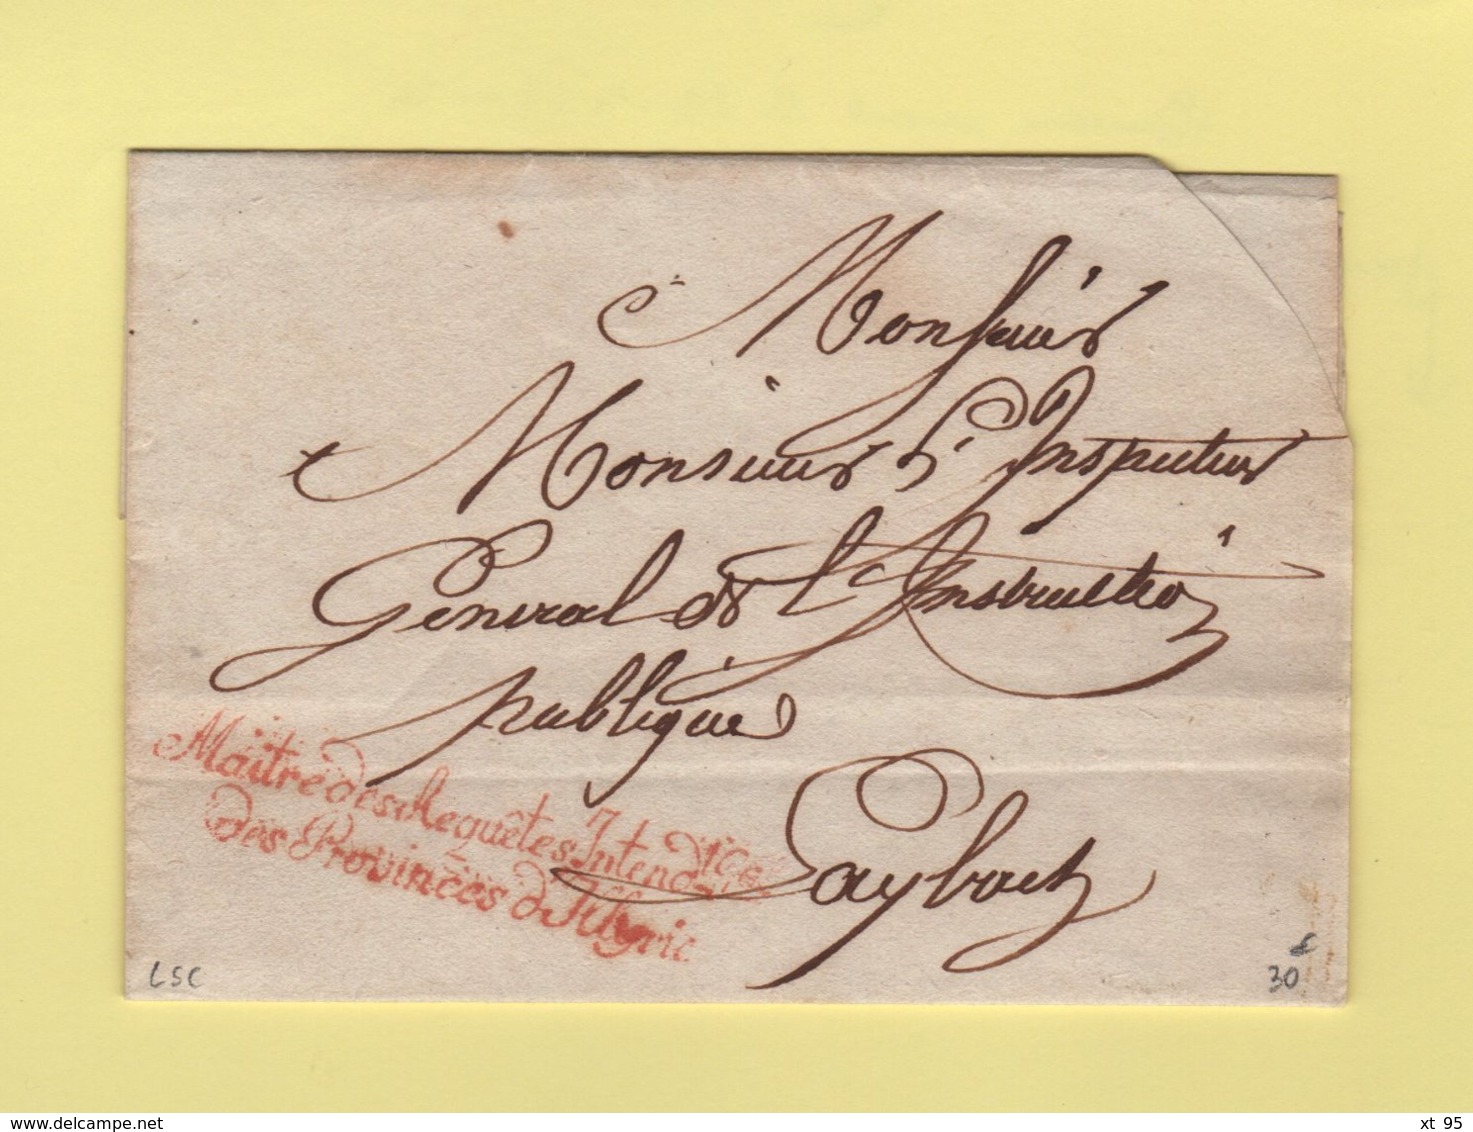 Monsieur
Monsieur L'Inspecteur
Général de L'Instruction
publique
Laybach
Maitre des Requêtes Intend.t G.al
des Provinces d'Illyrie
LSC
30
xt 95